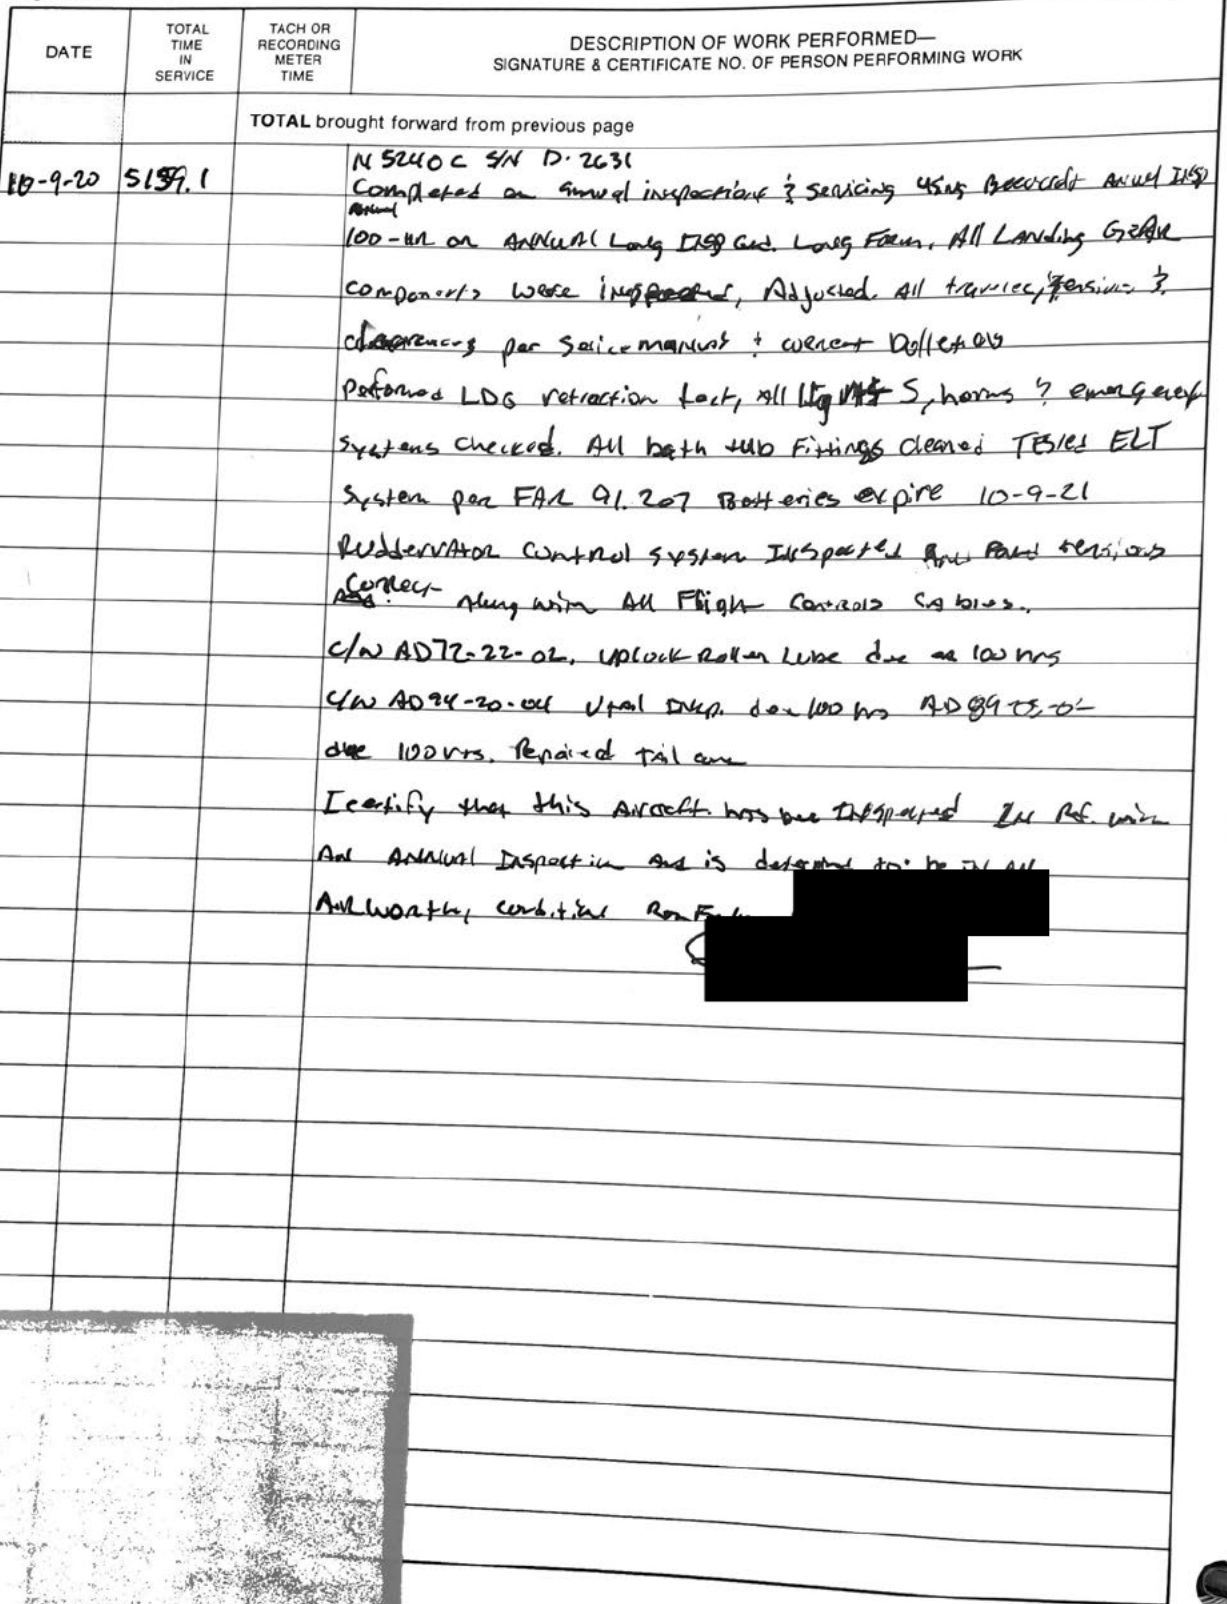 DATE
TOTAL TIME IN SERVICE
TACH OR RECORDING METER TIME
DESCRIPTION OF WORK PERFORMED—
SIGNATURE & CERTIFICATE NO. OF PERSON PERFORMING WORK
TOTAL brought forward from previous page
N5240C S/N D-2631
10-9-20 5159.1 Completed an annual inspections & servicing using Beechcraft Annual Insp
Annual
100-HR or ANNUAL Long Insp Long Form, All Landing GEAR
components were inspected, Adjusted. All tensions &
clearances per service manual + current
performed LDG retraction test, All lights, horns & emergency
systems checked. All bath tub Fittings cleaned TESTED ELT
System per FAR 91.207 Batteries expire 10-9-21
RuddervAtor control system Inspected tensions
Correct Along with All Flight Controls Cables.
C/W AD72-22-02, uplock Roller Lube due 100 hrs
C/W AD94-20-04 Vtail Insp. due 100 hrs AD
due 100 hrs. Repaired tail cone
I certify that this Aircraft has been Inspected Ref. with
An ANNUAL Inspection and is determined to be in AN
AIRworthy condition Ron